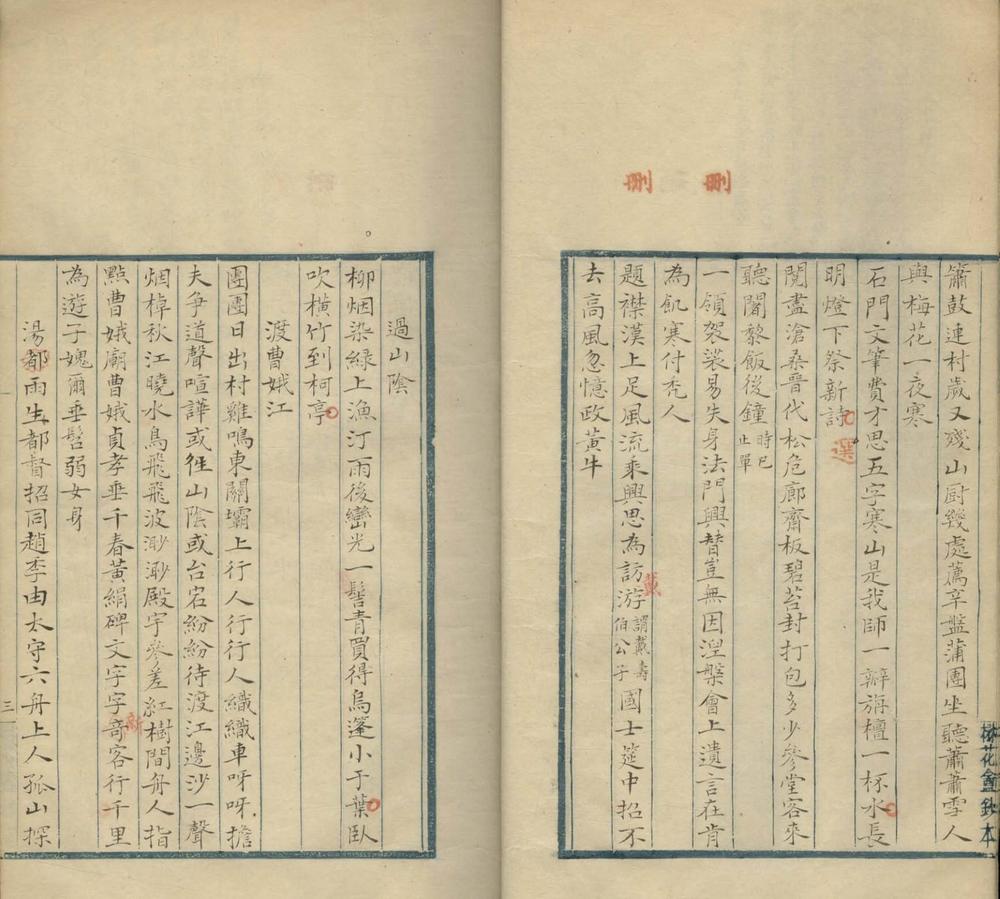 刪
刪
簫鼓連村歲又殘山厨幾處薦辛盤蒲團坐聽蕭蕭雪人
與梅花一夜寒
石門文筆費才思五字寒山是我師一瓣旃檀一杯水長
明燈下祭新詩
選
閱盡滄桑晋代松危廊齋板碧苔封打包多少參堂客來
聽闍黎飯後鐘時已止單
一領袈裟易失身法門興替豈無因湼槃會上遺言在肯
為飢寒付禿人
題襟漢上足風流乘興思為訪游謂戴壽伯公子國士筵中招不
戴
去高風忽憶政黃牛
梅花盦鈔本
過山陰
柳烟染綠上漁汀雨後巒光一髻青買得烏篷小于葉臥
吹橫竹到柯亭
渡曹娥江
團團日出村雞鳴東關壩上行人行行人織織車呀呀擔
夫爭道聲喧譁或徃山陰或台宕紛紛待渡江邊沙一聲
烟棹秋江曉水鳥飛飛波渺渺殿宇參差紅樹間舟人指
點曹娥廟曹娥貞孝垂千春黃絹碑文字字奇客行千里
新
為遊子媿爾垂髫弱女身
湯都雨生都督招同趙季由太守六舟上人孤山探
三